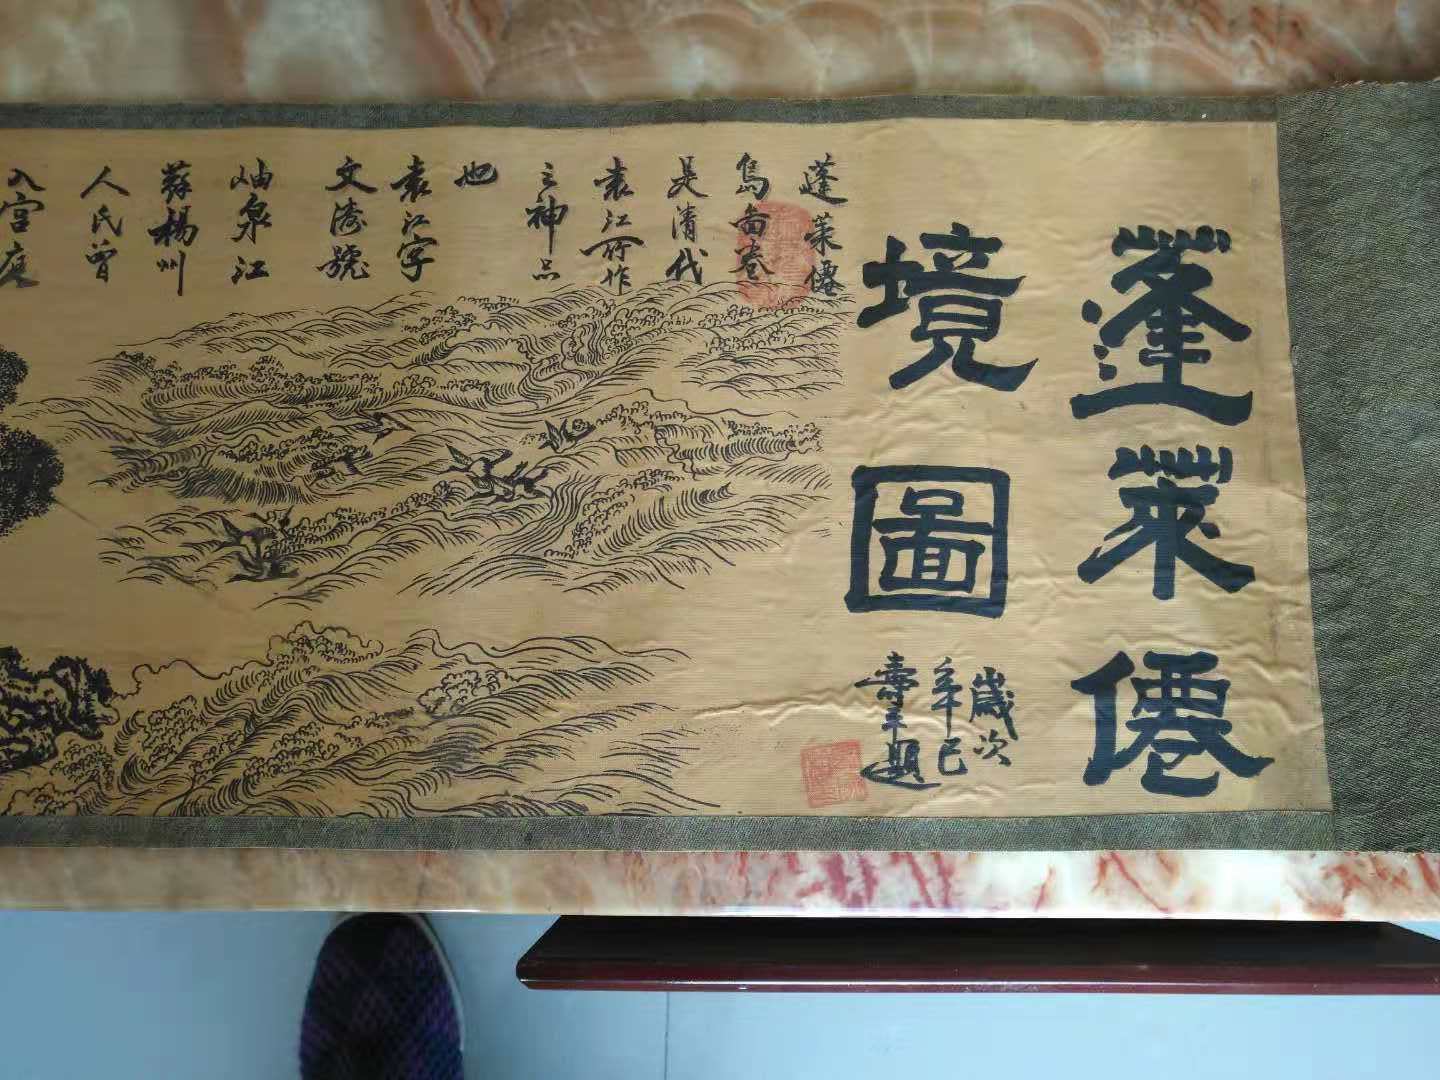 蓬萊僊
境圖
歲次
辛巳
壽平題
蓬萊僊
島圖卷
是清代
袁江所作
之神品
也
袁江字
文濤號
岫泉江
蘇楊州
人民曾
入宮庭